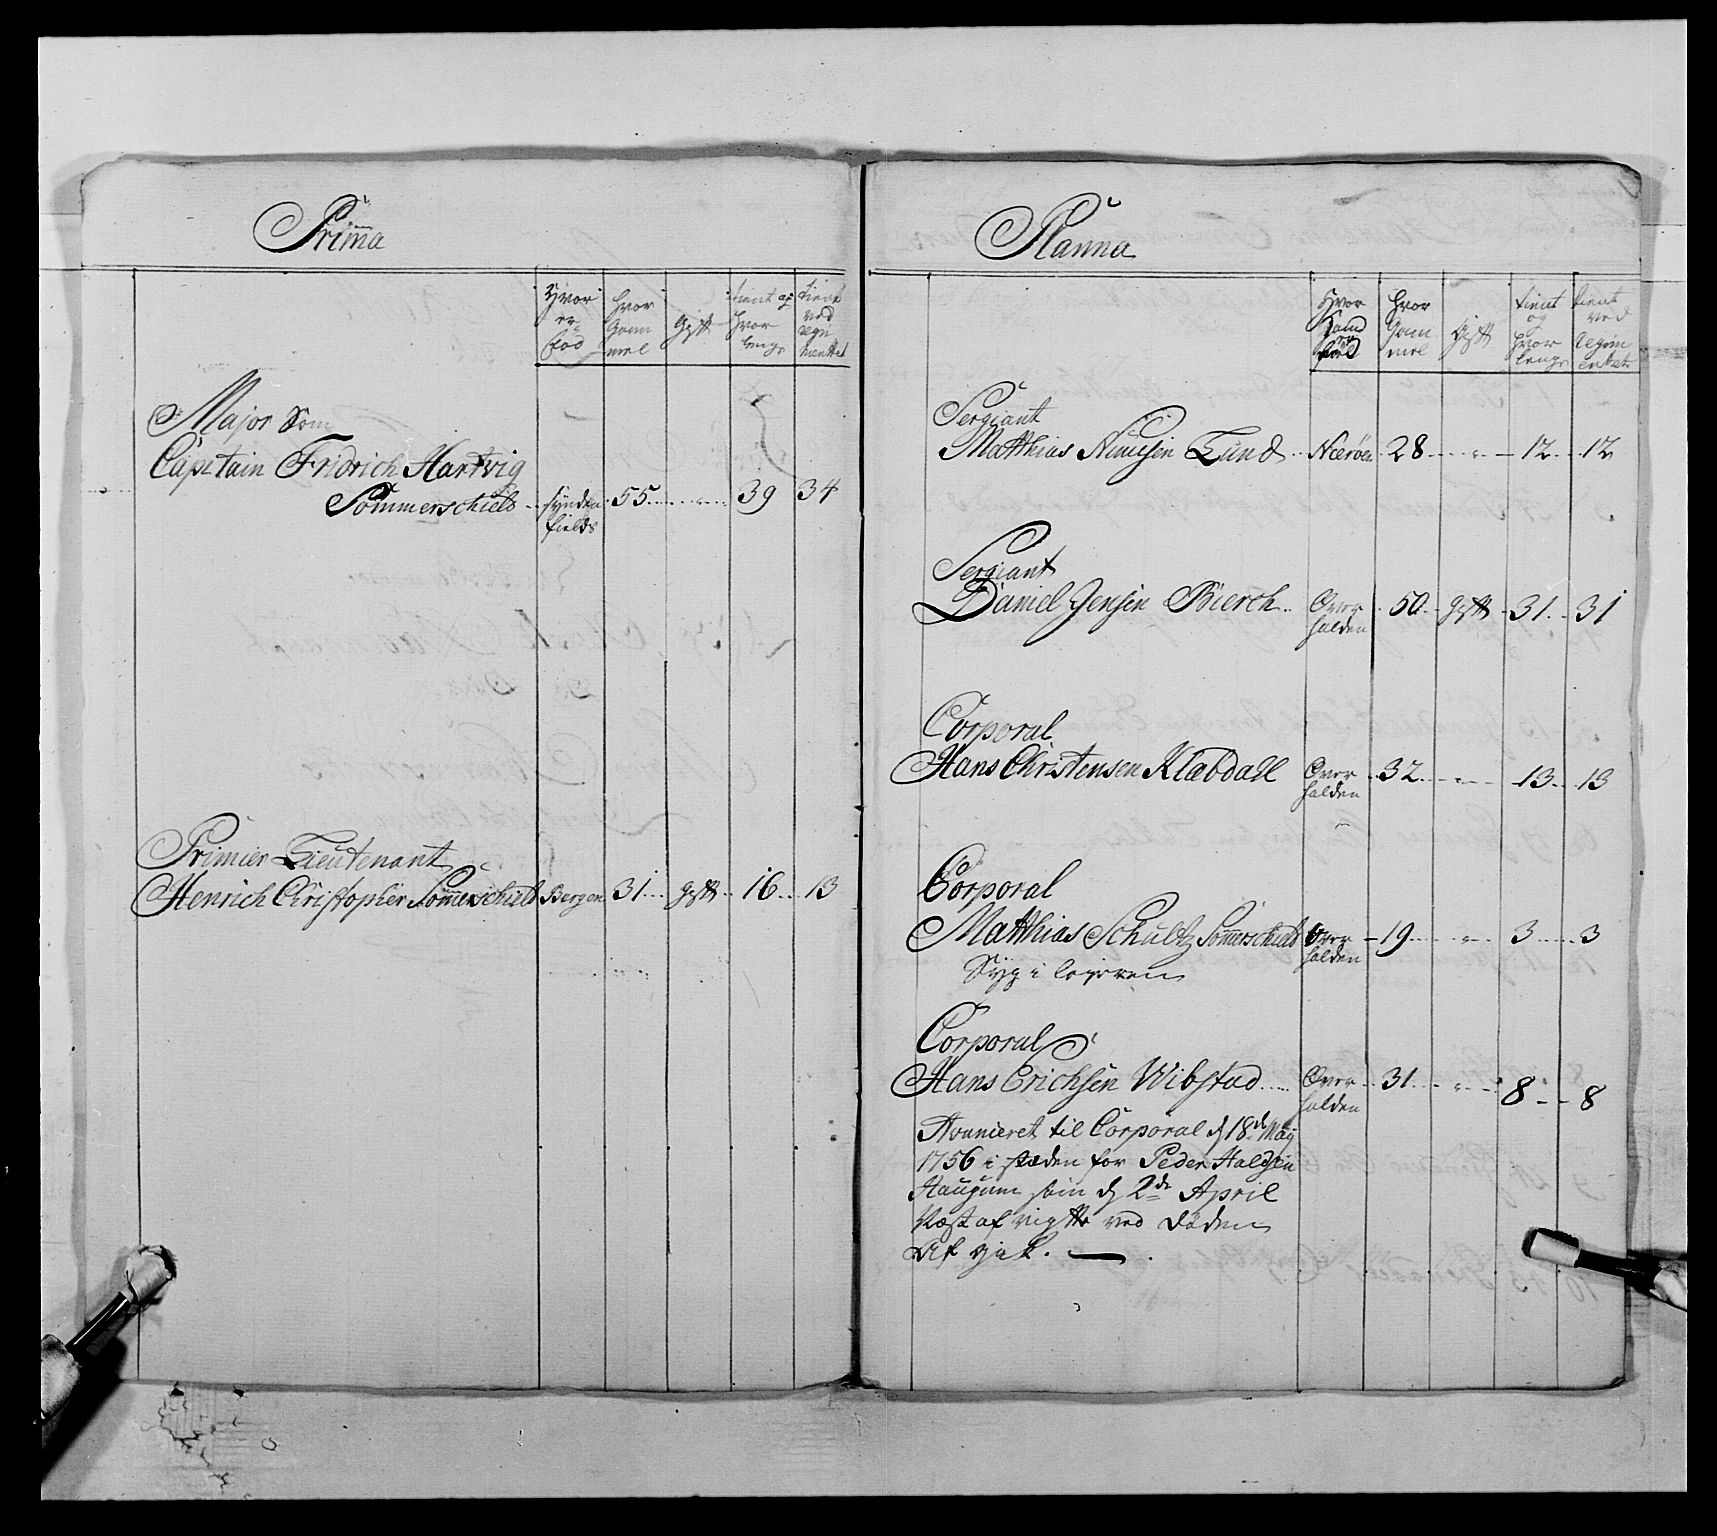 Prima
Hvor er föd
hvor Gam mel
Gift
tient og hvor lenge
tient ved regi menttet
Major Som
Capetain Fridrich Hartvig
Sommerschield synden fields 55 " 39 34
Primier Lieutenant
Henrich Christopher Sommerschield Bergen 31 gift 16 13
Planna
Hvor hand er föed
hvor Gam mel
Gift
tient og hvor lenge
tient ved regim enttet
Sergiant
Matthias Lund Næröen 28 " 12 12
Sergiant
Daniel Jensen Bierch Over halden 50 gift 31 31
Corporal
Hans Christensen Klabdall Over halden 32 " 13 13
Corporal
Matthias Schultz Sommerschield Over halden 19 " 3 3
Syg i legeren
Corporal
Hans Erichsen Wibstad Over halden 31 " 8 8
Avanceret til Corporal d 18de Maij
1756 i stæden for Peder Haldsen
Haugum som d 2de April
Næst af vigtte ved Döden
Af gik.